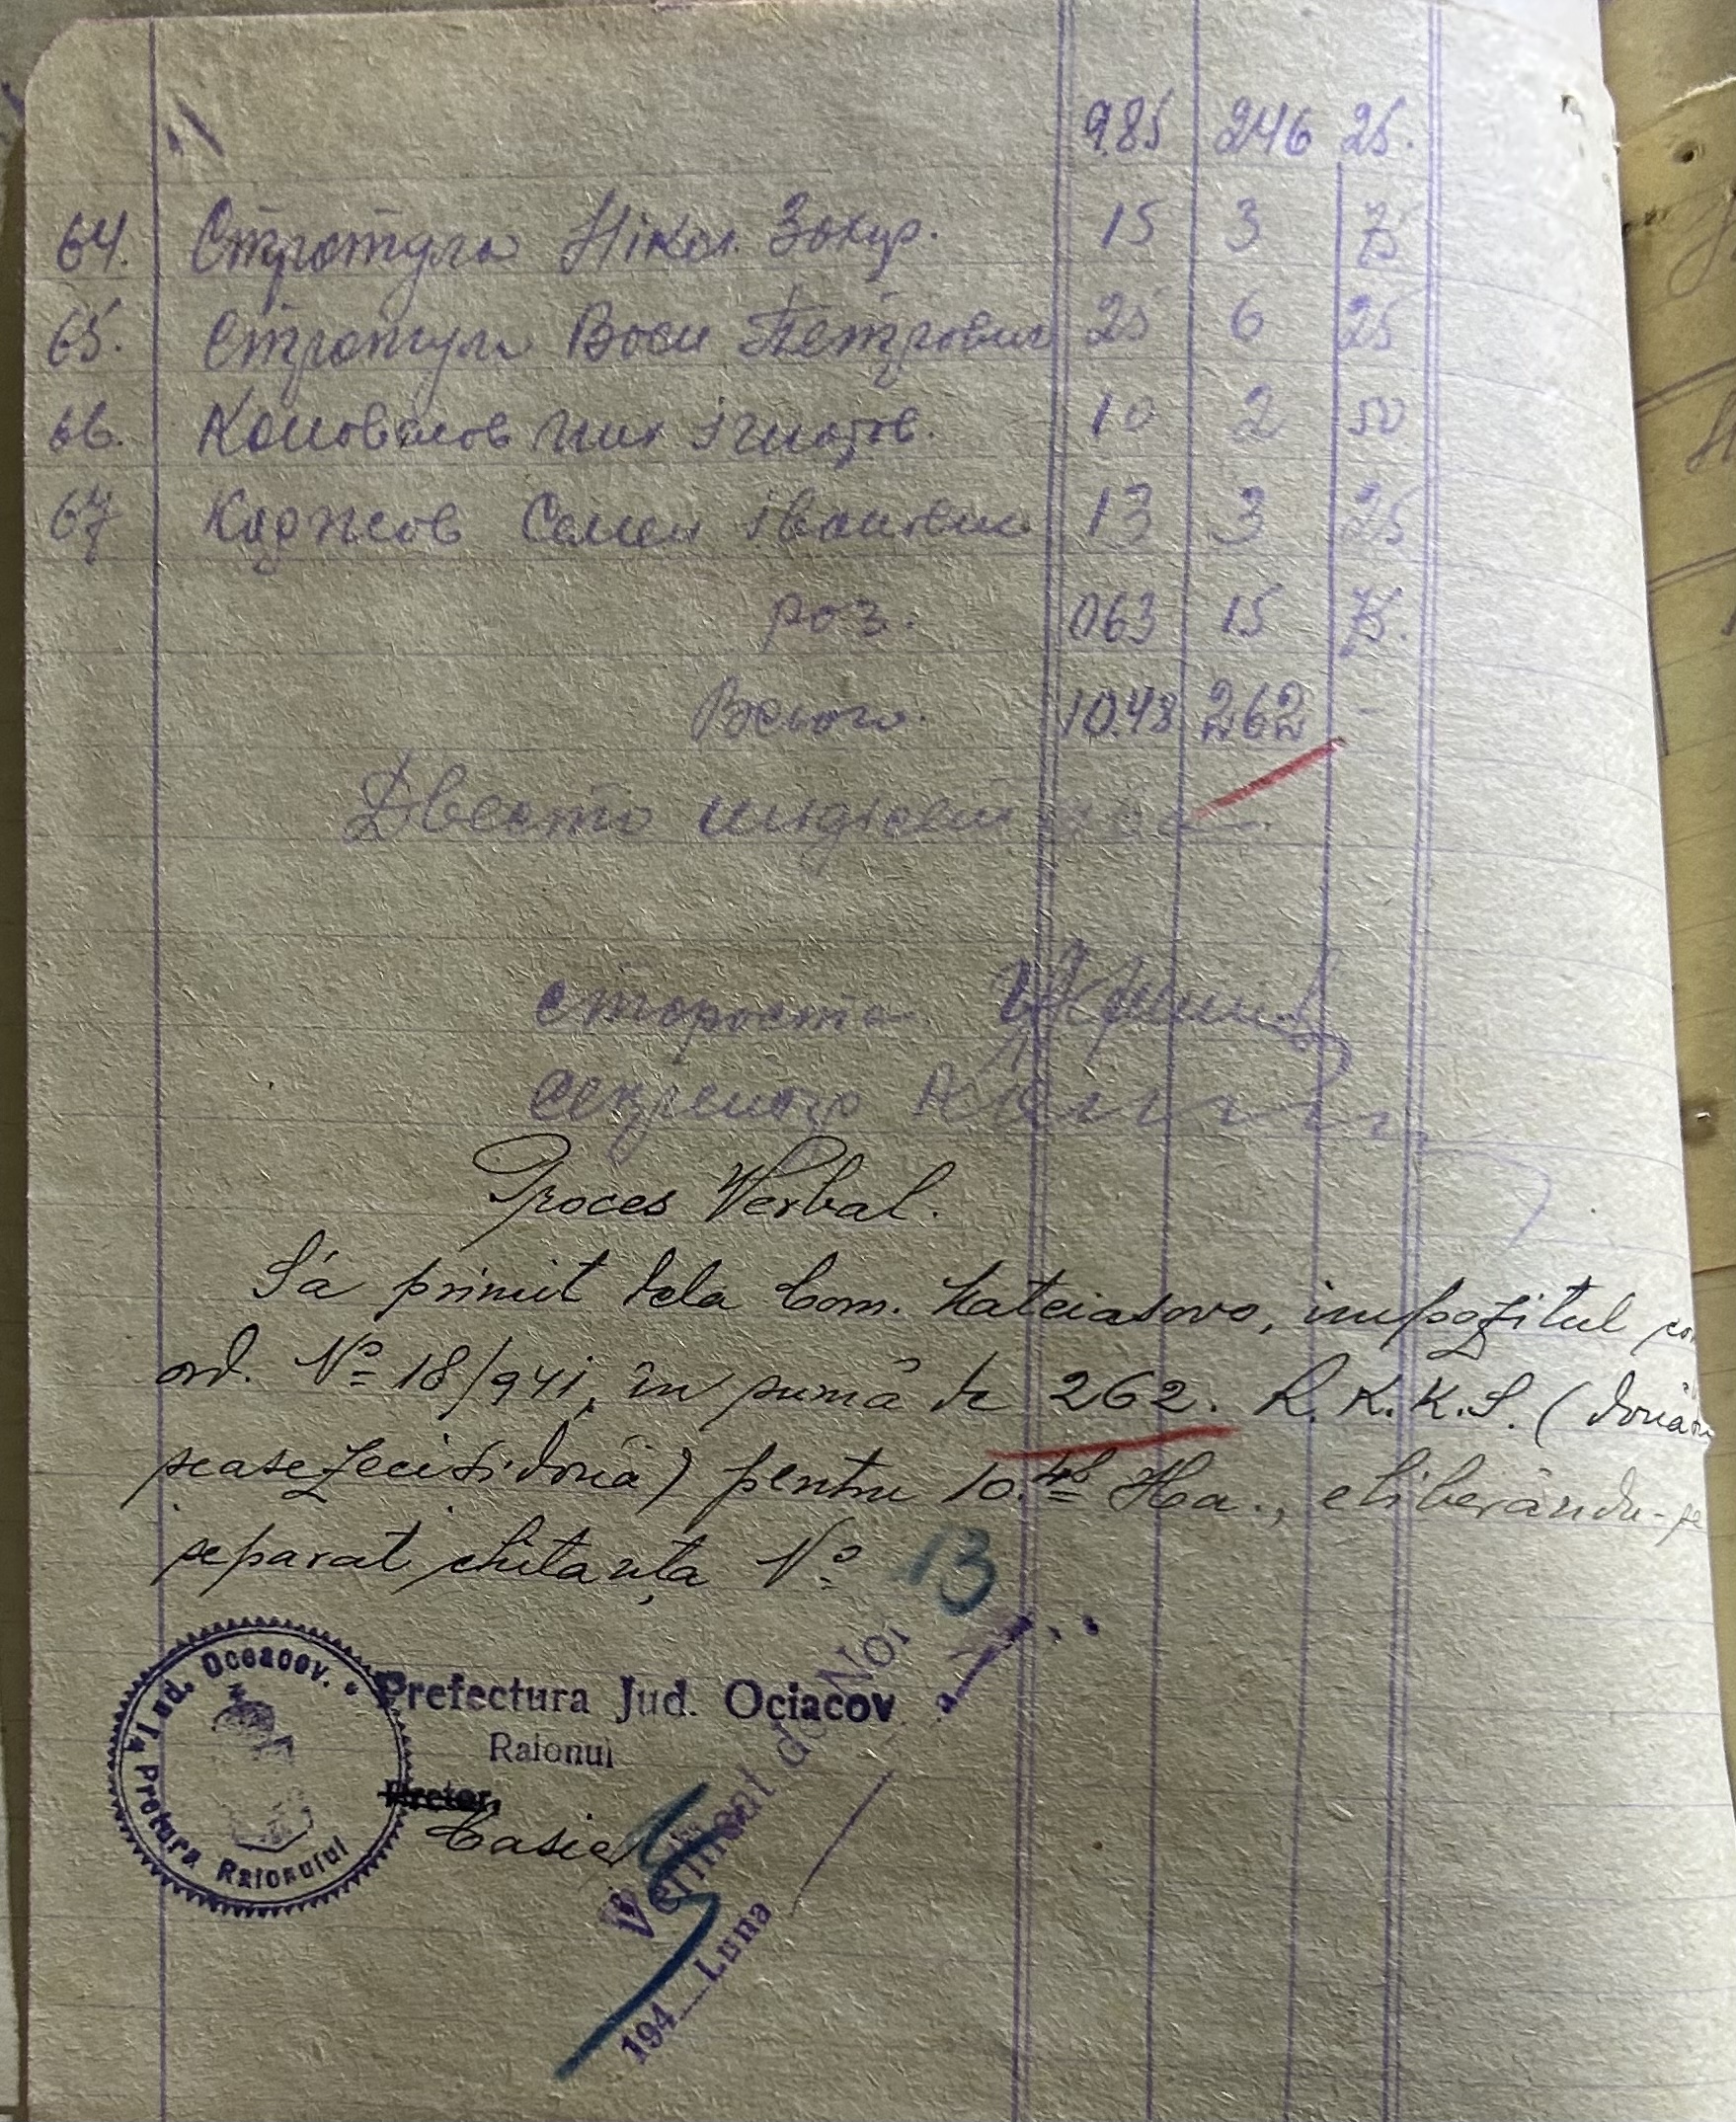 9.85 246 25.
64. Стротула Нікол. Захар. 15 3 75
65. Стротула Васи Петрович 25 6 25
66. Коновалов Мих Ігнатов. 10 2 50
67 Каржов Семен Іванович 13 3 25
Роз. 063 15 75.
Всього. 10.48 262 -
Двести шидісят два.
Староста
Секретарь
Proces Verbal.
S'a primit dela Com. Kateiasovo, impozitul
ord. № 18/941, în sumă de 262. R.K.K.S. (două
seasezecisidouă) pentru 10.48 Ha., eliberându-se
separat chitanța № 13
Jud. Oceacov.
Pretura Raionului
Prefectura Jud. Ociacov
Raionul
Pretor,
Casier
Verificat de Noi
194__ Luna